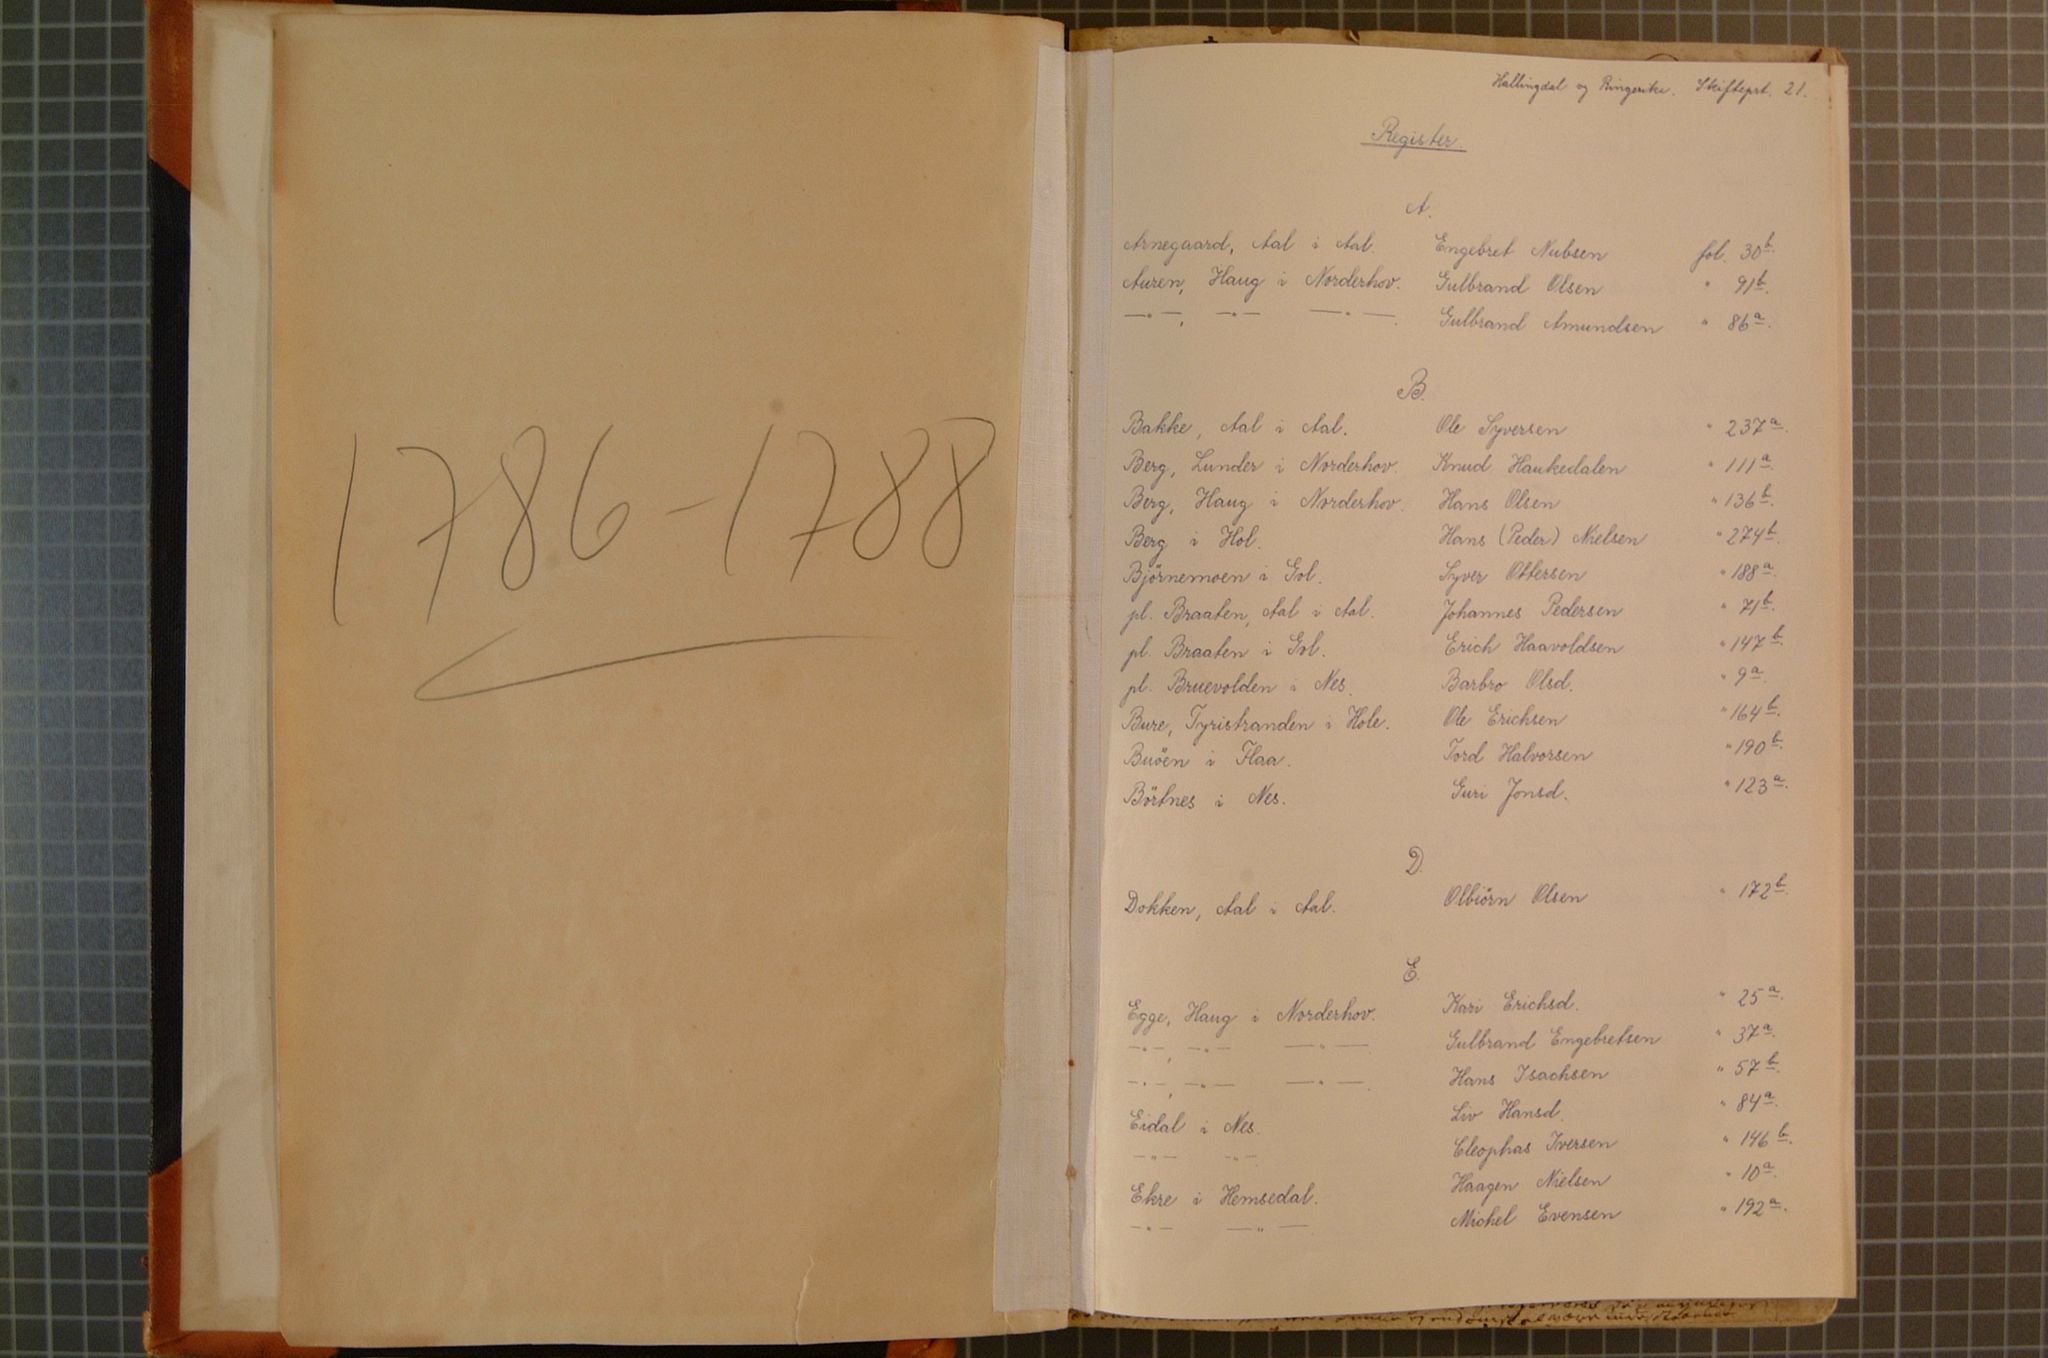 1786-1788
Hallingdal og Ringerike. Skifteprt. 21.
Register
A.
Arnegaard, Aal i Aal. Engebret Nubsen fol. 30b.
Auren, Haug i Norderhov. Gulbrand Olsen " 91b.
—"—, —"— —"—. Gulbrand Amundsen " 86a.
B.
Bakke, Aal i Aal. Ole Syversen " 237a.
Berg, Lunder i Norderhov. Knud Haukedalen " 111a.
Berg, Haug i Norderhov. Hans Olsen " 136b.
Berg i Hol. Hans (Peder) Nielsen " 274b.
Björnemoen i Gol. Syver Ottersen " 188a.
pl. Braaten, Aal i Aal. Johannes Pedersen " 71b.
pl. Braaten i Gol. Erich Haavoldsen " 147b.
pl. Bruevolden i Nes. Barbro Olsd. " 9a.
Bure, Tyristranden i Hole. Ole Erichsen " 164b.
Buöen i Flaa. Tord Halvorsen " 190b.
Börtnes i Nes. Guri Jonsd. " 123a.
D.
Dokken, Aal i Aal. Olbiörn Olsen " 172b.
E.
Egge, Haug i Norderhov. Kari Erichsd. " 25a.
—"—, —"— —"—. Gulbrand Engebretsen " 37a.
—"—, —"— —"—. Hans Isachsen " 57b.
Eidal i Nes. Liv Hansd. " 84a.
—"— —"—. Cleophas Iversen " 146b.
Ekre i Hemsedal. Haagen Nielsen " 10a.
—"— —"—. Michel Evensen " 192a.